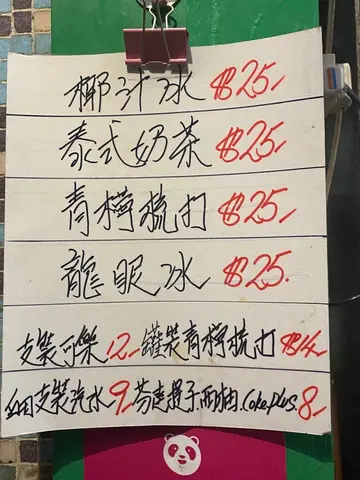 椰汁冰 $25
泰式奶茶 $25
青檸梳打 $25
龍眼冰 $25.
支裝可樂 12 罐裝青檸梳打 $14
細支裝汽水 9 芬達提子 西柚.Coke plus. 8